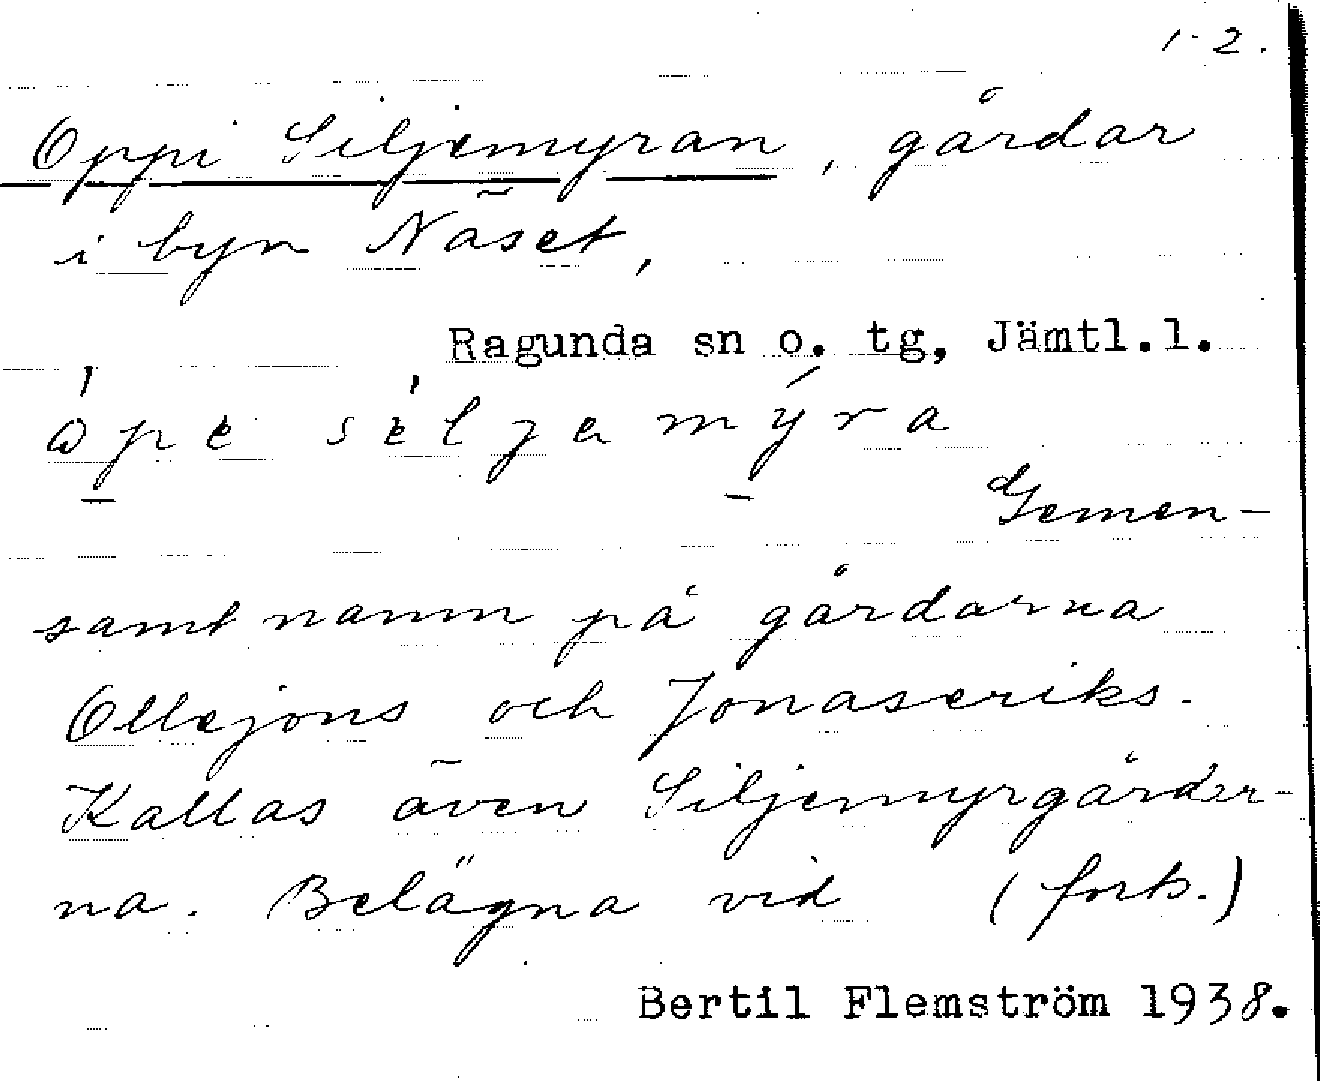 1-2.
Oppi Siljemyran, gårdar
i byn Näset,
Ragunda sn o. tg, Jämtl.l.
Gemen-
samt namn på gårdarna
Ollejons och Jonaseriks.
Kallas även Siljemyrgårdar-
na. Belägna vid (forts.)
Bertil Flemström 1938.